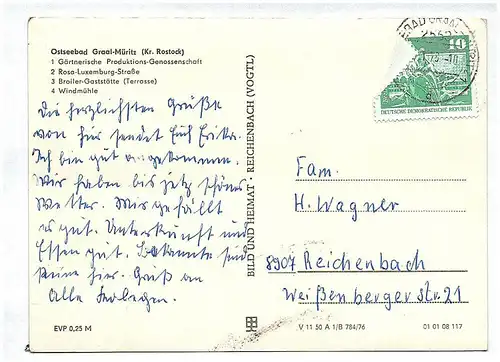 Ostseebad Graal-Müritz (Kr. Rostock)
1 Gärtnerische Produktions-Genossenschaft
2 Rosa-Luxemburg-Straße
3 Broiler-Gaststätte (Terrasse)
4 Windmühle
Die herzlichsten Grüße
von hir sendet Euch Erika.
Ich bin gut angekommen.
Wir haben bis jetz schönes
Wetter. Mir gefällt
es gut. Unterkunft und
Essen gut. Bekannte sind
keine hier. Gruß an
alle
EVP 0,25 M
BILD UND HEIMAT · REICHENBACH (VOGTL)
10
DEUTSCHE DEMOKRATISCHE REPUBLIK
Fam.
H. Wagner
8907 Reichenbach
Weißenbergerstr. 21
V 11 50 A 1/B 784/76
01 01 08 117